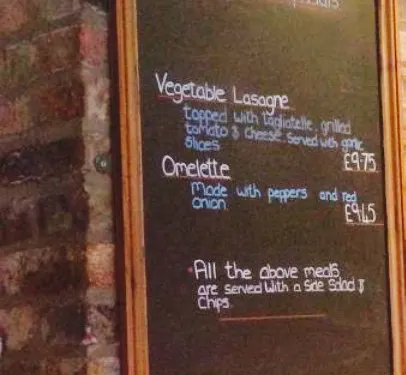 Specials
Vegetable Lasagne
topped with tagliatelle, grilled
tomato & cheese. Served with garlic
slices
£9.75
Omelette
Made with peppers and red
onion.
£9.65
All the above meals
are served with a side salad &
chips.